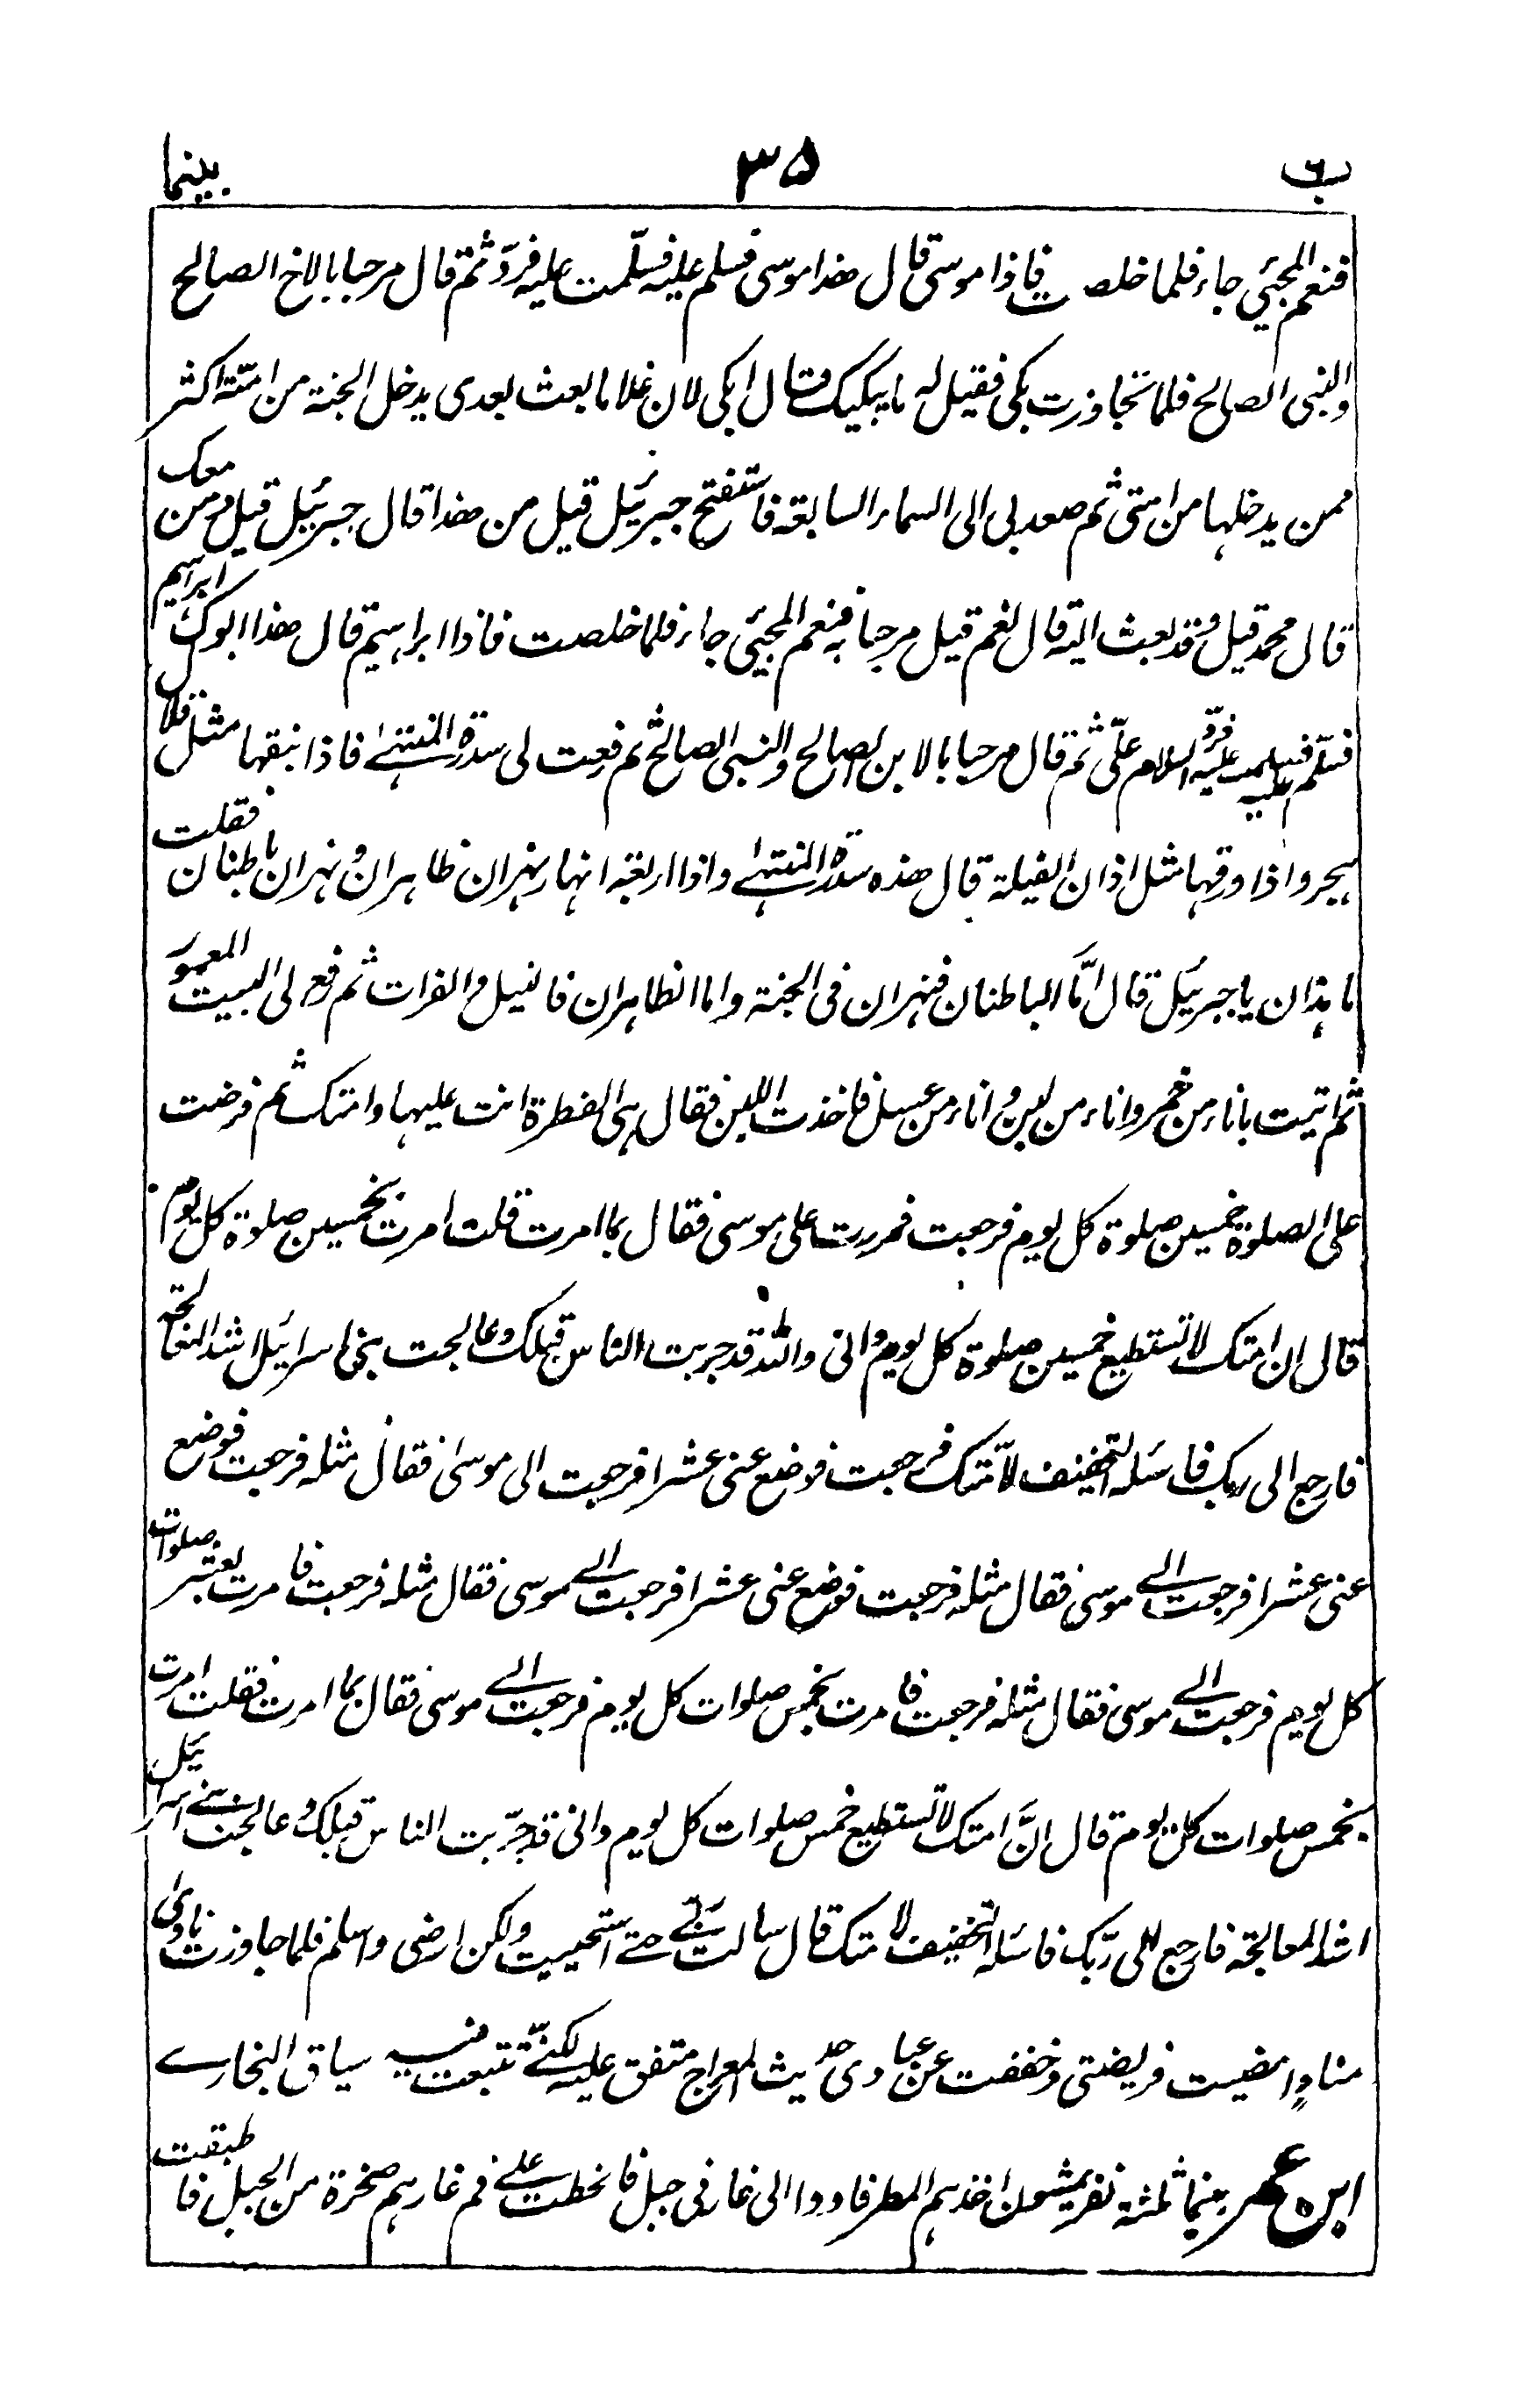 ب ٣٥ بينما
فنعم المجئي جاء فلما خلصت فاذا موسى قال هذا موسى فسلم عليه فسلّمت عليه فردّ ثم قال مرحبا بالاخ الصالح
والنبى الصالح فلما تجاوزت بكى فقيل له ما يبكيك قال ابكى لان غلاما بعث بعدى يدخل الجنة من امته اكثر
ممن يدخلها من امتى ثم صعد بى الى السماء السابعة فاستفتح جبرئيل قيل من هذا قال جبرئيل قيل ومن معك
قال محمد قيل وقد بعث اليه قال نعم قيل مرحبا به فنعم المجيئ جاء فلما خلصت فاذا ابراهيم قال هذا ابوك ابراهيم
فسلّم عليه فسلمت عليه فردّ السلام علّى ثم قال مرحبا بالابن الصالح والنبى الصالح ثم رفعت لى سدرة المنتهى فاذا نبقها مثل قلال
هجر واذا ورقها مثل اذان الفيلة قال هذه سدرة المنتهى واذا اربعة انهار نهران ظاهران ونهران باطنان فقلت
ما هذان يا جبرئيل قال امّا الباطنان فنهران فى الجنة واما الظاهران فالنيل والفرات ثم رفع لى البيت المعمور
ثم اتيت باناء من خمر واناء من لبن واناء من عسل فاخذت اللبن فقال هى الفطرة انت عليها وامتك ثم فرضت
على الصلوة خمسين صلوة كل يوم فرجعت فمررت على موسى فقال بما امرت قلت امرت بخمسين صلوة كل يوم
قال ان امتك لا تستطيع خمسين صلوة كل يوم وانى والله قد جربت الناس قبلك وعالجت بنى اسرائيل اشد المعالجة
فارجع الى ربك فاسئله التخفيف لامّتك فرجعت فوضع عنى عشرا فرجعت الى موسى فقال مثله فرجعت فوضع
عنى عشرا فرجعت الى موسى فقال مثله فرجعت فوضع عنى عشرا فرجعت الى موسى فقال مثله فرجعت فامرت بعشر صلوات
كل يوم فرجعت الى موسى فقال مثله فرجعت فامرت بخمس صلوات كل يوم فرجعت الى موسى فقال بما امرت فقلت امرت
بخمس صلوات كل يوم قال انّ امتك لا تستطيع خمس صلوات كل يوم وانى قد جرّبت الناس قبلك وعالجت بنى اسرائيل
اشد المعالجة فارجع الى ربّك فاسئله التخفيف لامتك قال سالت ربّى حتى استحييت ولكن ارضى واسلم فلما جاوزت نادى
منادٍ امضيت فريضتى وخففت عن عبادى حديث المعراج متفق عليه لكنّى تتبعت فيه سياق البخارى
ابن عمر بينما ثلثة نفر يمشون اخذهم المطر فاووا الى غار فى جبل فانحطت على فم غارهم صخرة من الجبل فاطبقت